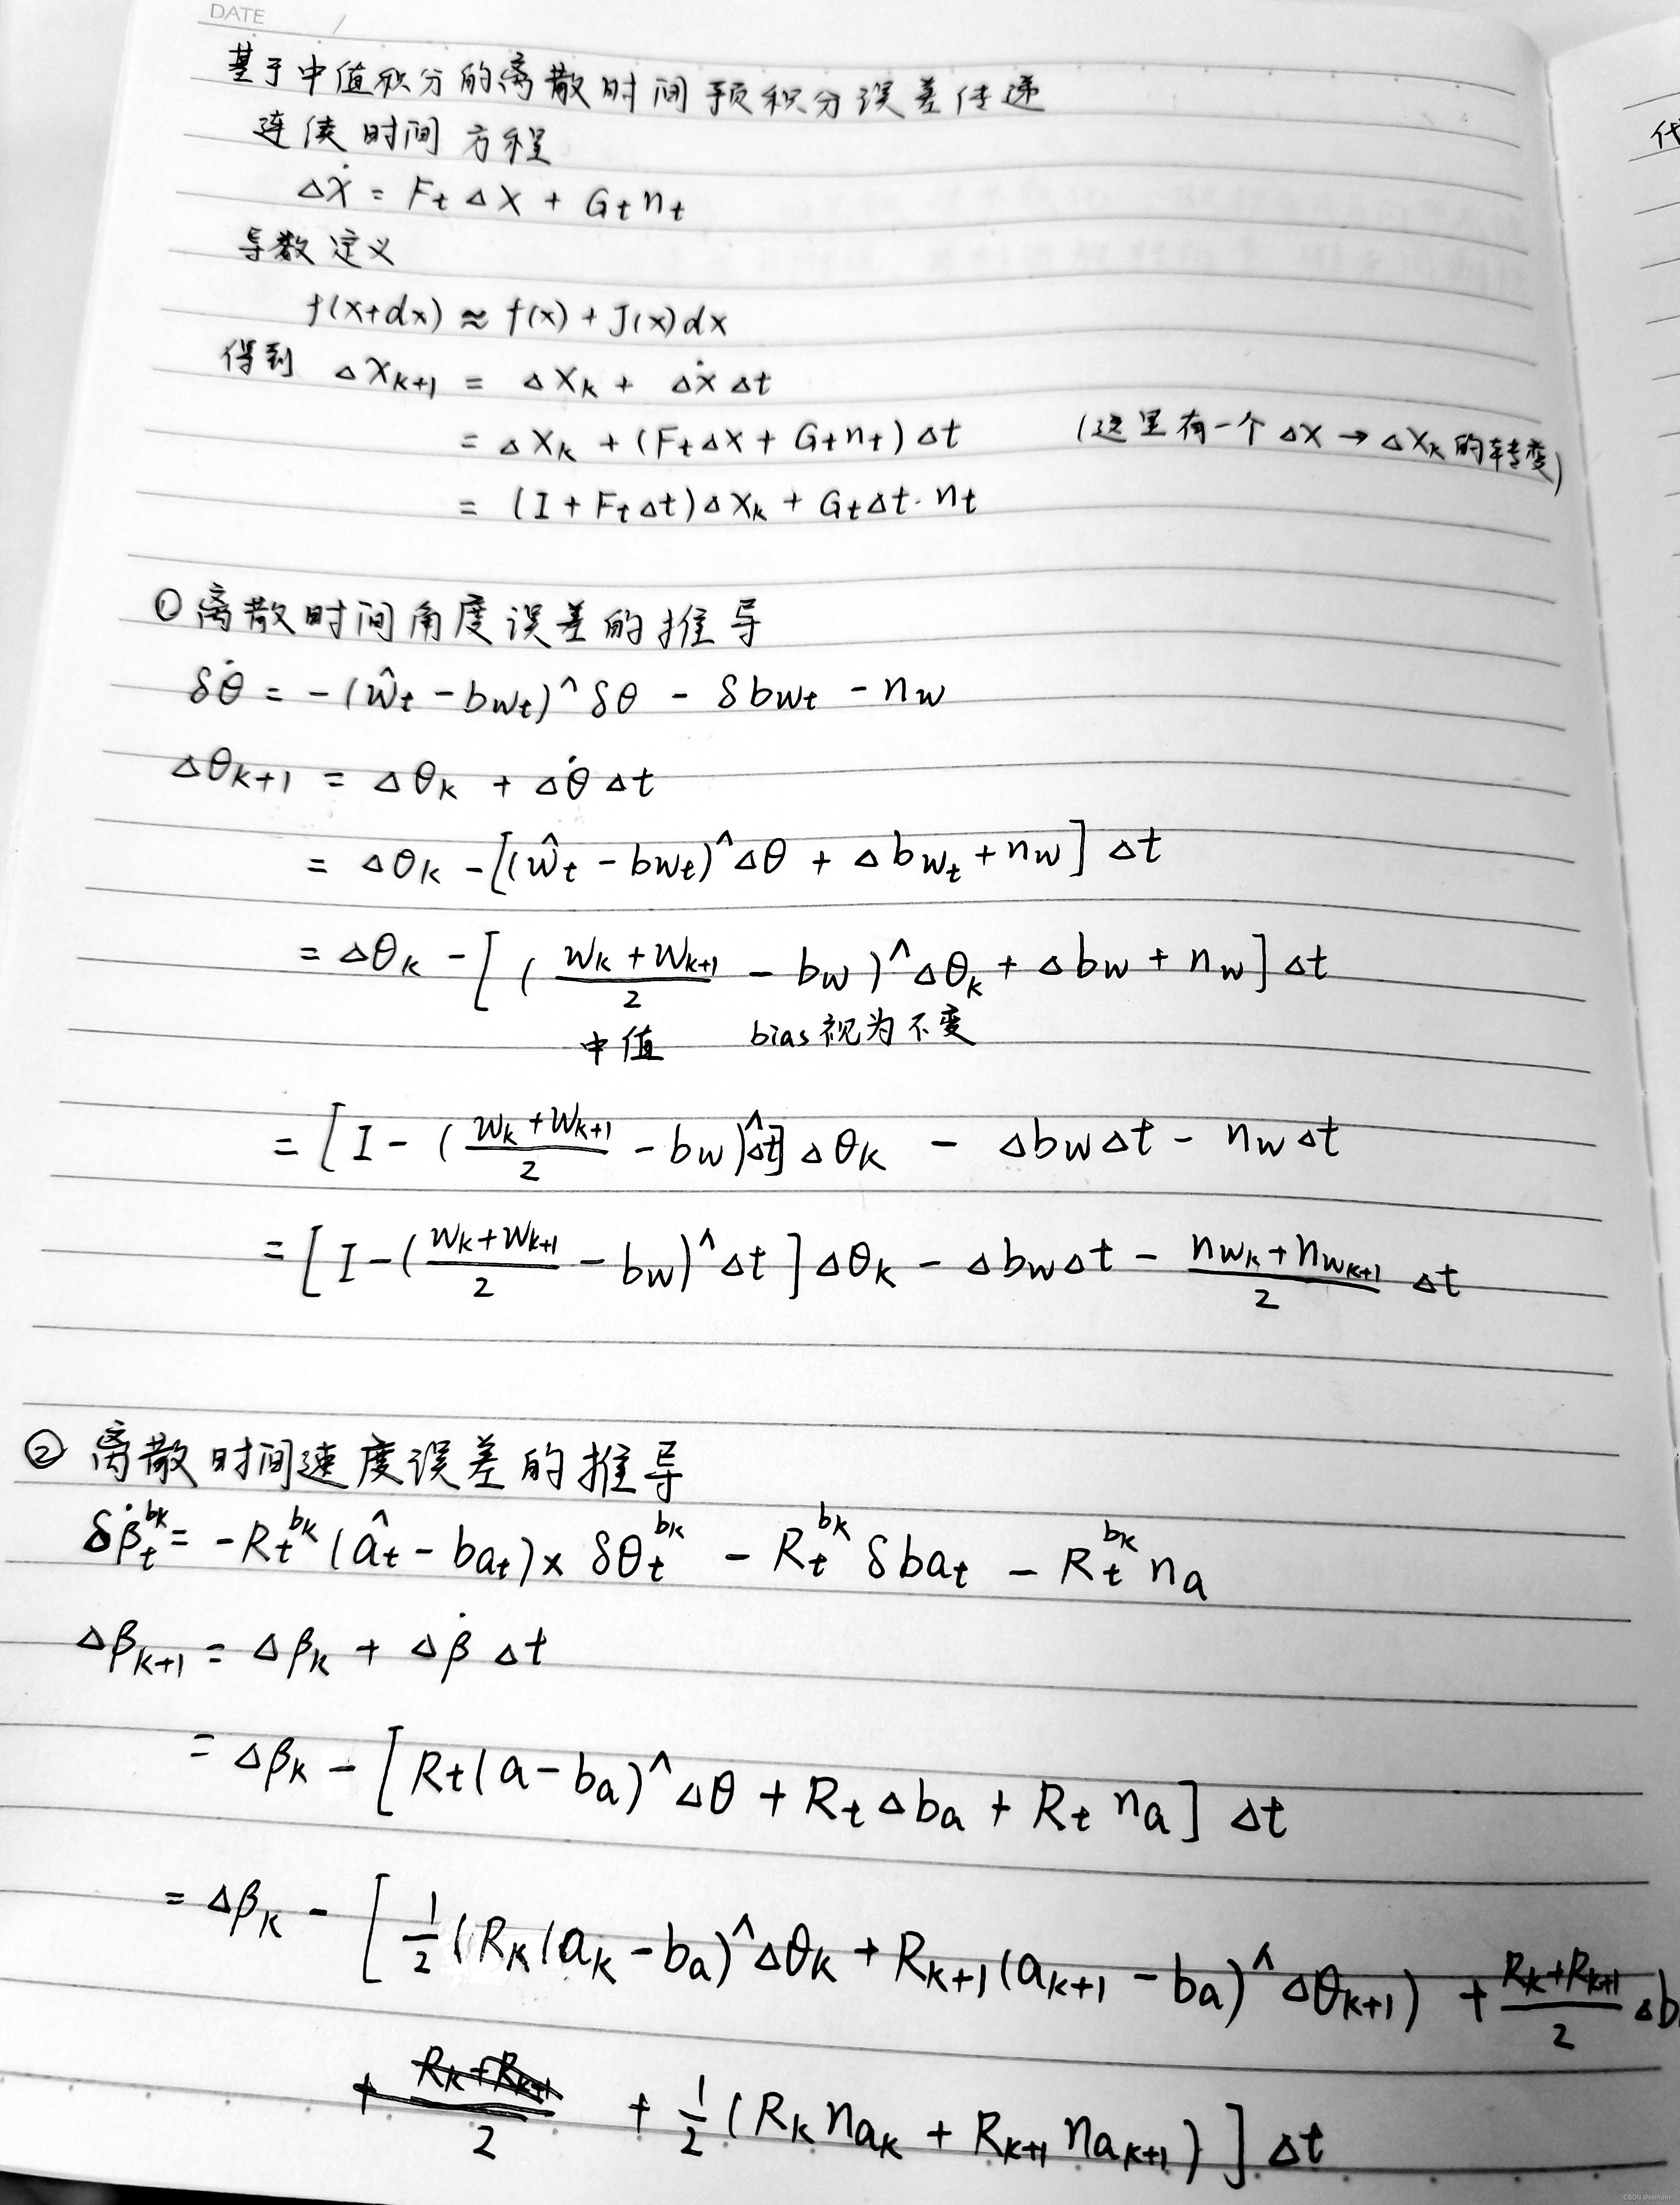 DATE /
基于中值积分的离散时间预积分误差传递
连续时间方程
Δẋ = F_t Δx + G_t n_t
导数定义
f(x+dx) ≈ f(x) + J(x)dx
得到 Δx_{k+1} = Δx_k + Δẋ Δt
= Δx_k + (F_tΔx + G_tn_t)Δt (这里有一个Δx → Δx_k的转变)
= (I + F_tΔt)Δx_k + G_tΔt·n_t
① 离散时间角度误差的推导
δθ̇ = -(ŵ_t - b_{wt})^∧ δθ - δb_{wt} - n_w
Δθ_{k+1} = Δθ_k + Δθ̇ Δt
= Δθ_k - [(ŵ_t - b_{wt})^∧ Δθ + Δb_{w_t} + n_w] Δt
= Δθ_k - [((w_k + w_{k+1})/2 - b_w)^∧ Δθ_k + Δb_w + n_w] Δt
中值 bias视为不变
= [I - ((w_k + w_{k+1})/2 - b_w)^∧ Δt] Δθ_k - Δb_wΔt - n_wΔt
= [I - ((w_k + w_{k+1})/2 - b_w)^∧ Δt] Δθ_k - Δb_wΔt - (n_{w_k} + n_{w_{k+1}})/2 Δt
② 离散时间速度误差的推导
δβ̇_t^{bk} = -R_t^{bk}(â_t - b_{at})× δθ_t^{bk} - R_t^{bk} δb_{at} - R_t^{bk} n_a
Δβ_{k+1} = Δβ_k + Δβ̇ Δt
= Δβ_k - [R_t(a - b_a)^∧ Δθ + R_tΔb_a + R_t n_a] Δt
= Δβ_k - [1/2 (R_k(a_k - b_a)^∧ Δθ_k + R_{k+1}(a_{k+1} - b_a)^∧ Δθ_{k+1}) + (R_k+R_{k+1})/2 Δb
+ (R_k+R_{k+1})/2 + 1/2 (R_k n_{a_k} + R_{k+1} n_{a_{k+1}})] Δt